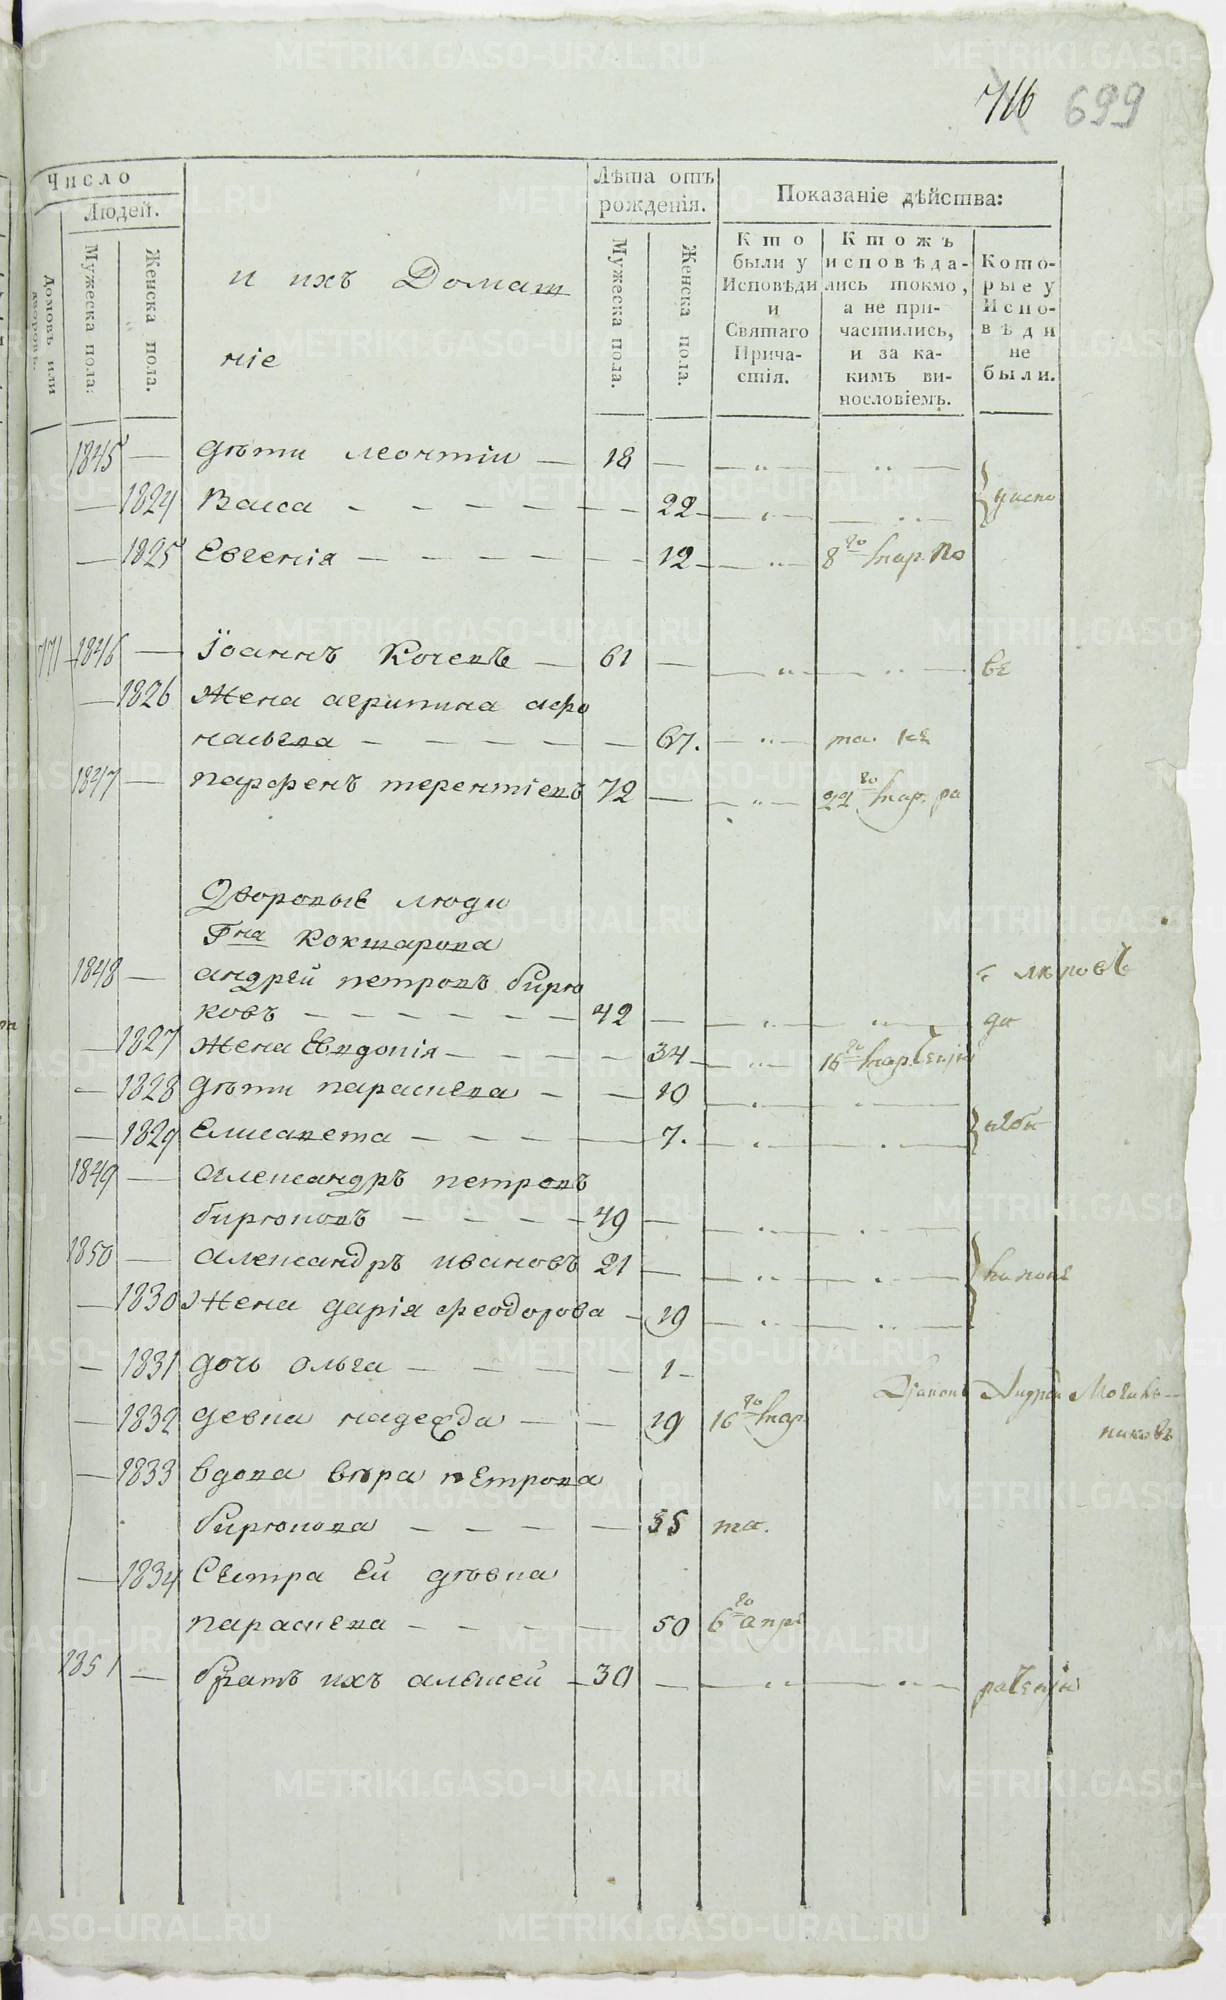 716 699
Число
Людей.
Домовъ или дворовъ.
Мужеска пола.
Женска пола.
и ихъ Домаш
ніе
Лѣта отъ рожденія.
Мужеска пола.
Женска пола.
Показаніе дѣйства:
Кто были у Исповѣди и Святаго Причастія.
Ктожъ исповѣдались токмо, а не причастились, и за какимъ винословіемъ.
Которые у Исповѣди не были.
1845 — дѣти леонтіи — 18 —
— 1824 Васса — 22
— 1825 Евгенія — 12 8го мар. по
771 1846 — Іоаннъ Кочевъ — 61 —
— 1826 Жена агрипина афо
насьева — 67. та. же
1847 — парфенъ терентіевъ 72 — 22го мар. ра
Дворовые люди
Гна Кокшарова
1848 — андрей петровъ бирю
ковъ — 42 —
— 1827 Жена Евдокія — 34 16го мар.
— 1828 дѣти параскева — 10
— 1829 Елисавета — 7.
1849 — Александръ петровъ
бирюковъ — 49 —
1850 — александръ ивановъ 21 —
— 1830 Жена дарія феодорова — 19
— 1831 дочь ольга — 1 —
Діаконъ Андрей
— 1832 девка надежда — 19 16го мар.
— 1833 вдова вѣра петрова
бирюкова — 55 та.
— 1834 Сестра ей дѣвка
параскева — 50 6го апре
1851 — братъ ихъ алексей — 30 —